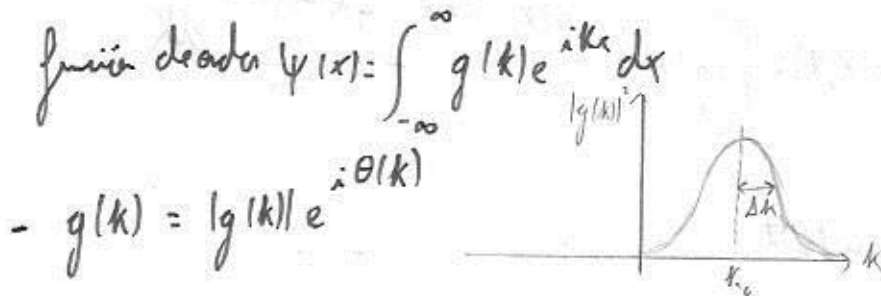 función de onda ψ(x) = ∫_{-∞}^{∞} g(k) e^{ikx} dx
|g(k)|²
- g(k) = |g(k)| e^{iθ(k)}
Δk
k
k₀